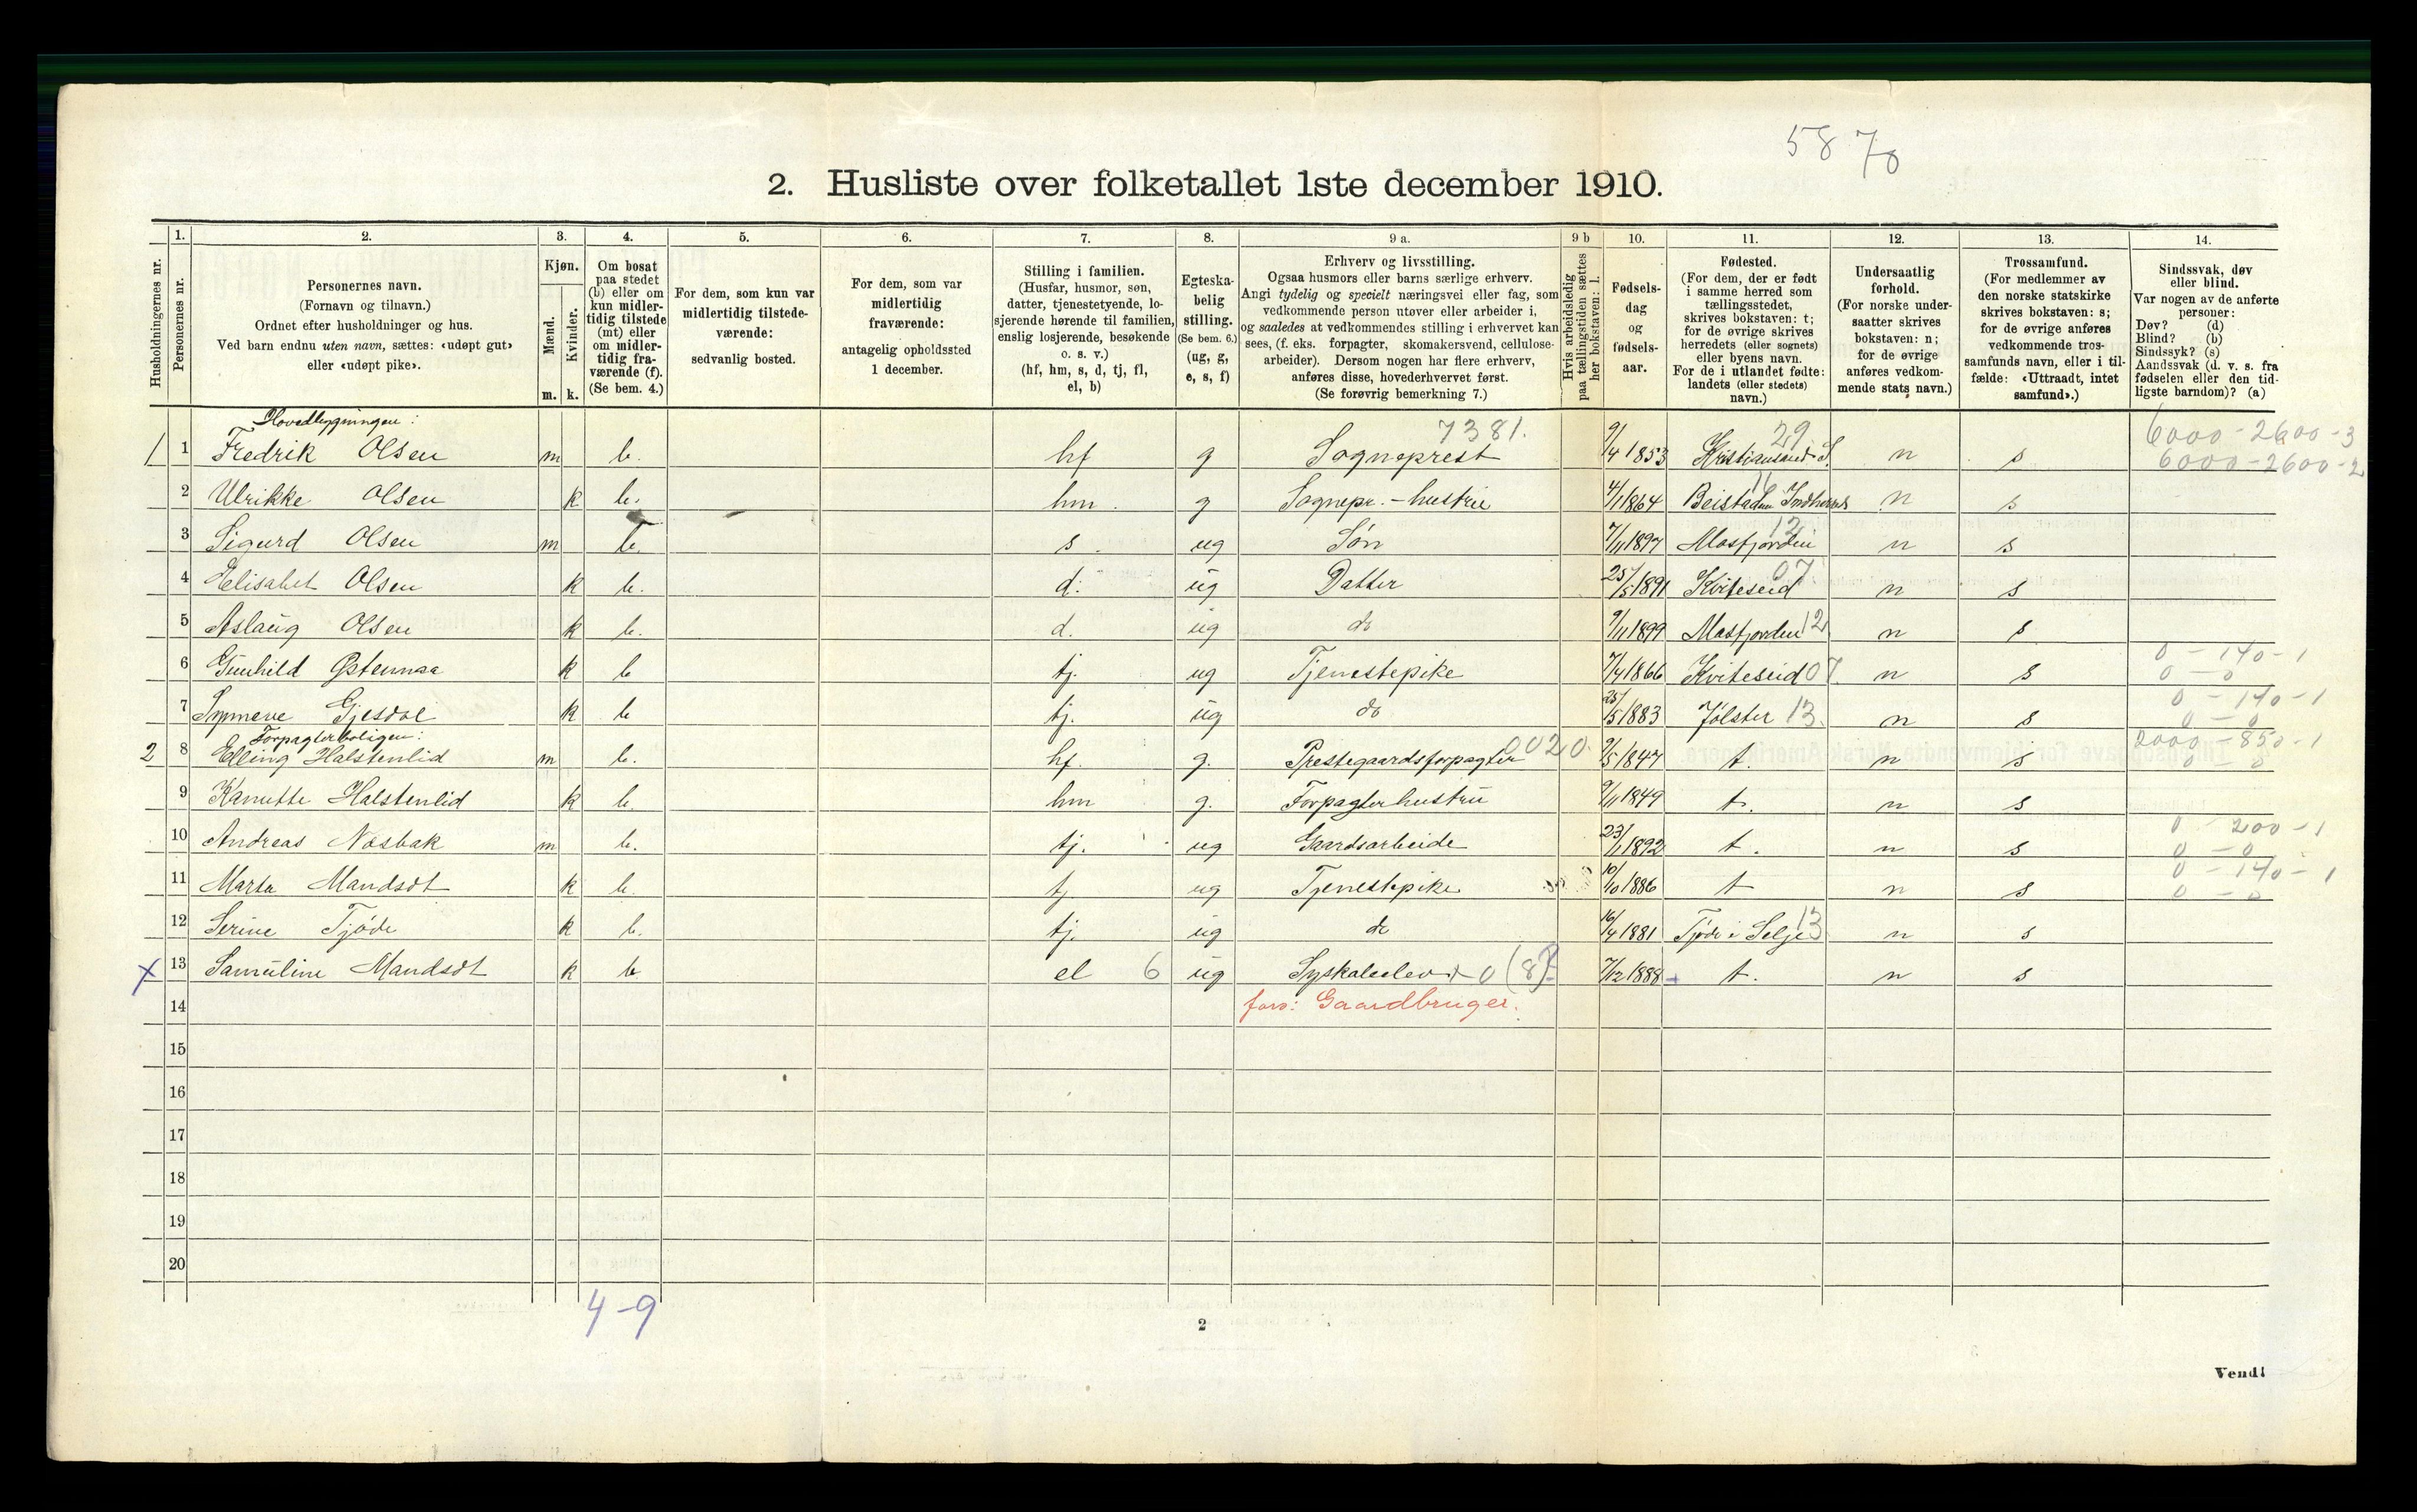 5870
2. Husliste over folketallet 1ste december 1910.
Husholdningernes nr.
1.
Personernes nr.
2.
Personernes navn.
(Fornavn og tilnavn.)
Ordnet efter husholdninger og hus.
Ved barn endnu uten navn, sættes: «udøpt gut»
eller «udøpt pike».
3.
Kjøn.
Mænd.
Kvinder.
m. k.
4.
Om bosat
paa stedet
(b) eller om
kun midler-
tidig tilstede
(mt) eller
om midler-
tidig fra-
værende (f).
(Se bem. 4.)
5.
For dem, som kun var
midlertidig tilstede-
værende:
sedvanlig bosted.
6.
For dem, som var
midlertidig
fraværende:
antagelig opholdssted
1 december.
7.
Stilling i familien.
(Husfar, husmor, søn,
datter, tjenestetyende, lo-
sjerende hørende til familien,
enslig losjerende, besøkende
o. s. v.)
(hf, hm, s, d, tj, fl,
el, b)
8.
Egteska-
belig
stilling.
(Se bem. 6.)
(ug, g,
e, s, f)
9 a.
Erhverv og livsstilling.
Ogsaa husmors eller barns særlige erhverv.
Angi tydelig og specielt næringsvei eller fag, som
vedkommende person utøver eller arbeider i,
og saaledes at vedkommendes stilling i erhvervet kan
sees, (f. eks. forpagter, skomakersvend, cellulose-
arbeider). Dersom nogen har flere erhverv,
anføres disse, hovederhvervet først.
(Se forøvrig bemerkning 7.)
9 b
Hvis arbeidsledig
paa tællingstiden sættes
her bokstaven: l.
10.
Fødsels-
dag
og
fødsels-
aar.
11.
Fødested.
(For dem, der er født
i samme herred som
tællingsstedet,
skrives bokstaven: t;
for de øvrige skrives
herredets (eller sognets)
eller byens navn.
For de i utlandet fødte:
landets (eller stedets)
navn.)
12.
Undersaatlig
forhold.
(For norske under-
saatter skrives
bokstaven: n;
for de øvrige
anføres vedkom-
mende stats navn.)
13.
Trossamfund.
(For medlemmer av
den norske statskirke
skrives bokstaven: s;
for de øvrige anføres
vedkommende tros-
samfunds navn, eller i til-
fælde: «Uttraadt, intet
samfund».)
14.
Sindssvak, døv
eller blind.
Var nogen av de anførte
personer:
Døv? (d)
Blind? (b)
Sindssyk? (s)
Aandssvak (d. v. s. fra
fødselen eller den tid-
ligste barndom)? (a)
Hovedbygningen:
7381. 29 6000-2600-3
1 1 Fredrik Olsen m b. hf g Sogneprest 9/4 1853 Kristiansand S. n s 6000-2600-2
16
2 Ulrikke Olsen k b. hm. g Sognepr.-hustru 4/1 1864 Beistaden Indherred n s
12
3 Sigurd Olsen m b. s. ug Søn 7/11 1897 Masfjorden n s
07
4 Elisabet Olsen k b. d. ug Datter 25/5 1891 Kviteseid n s
5 Aslaug Olsen k b. d. ug do 9/11 1899 Masfjorden 12 n s
0-140-1
6 Gunhild Østennaa k b tj. ug Tjenestepike 7/4 1866 Kviteseid 07 n s 0-0
0-140-1
7 Synneve Gjesdal k b tj. ug do 25/5 1883 Jølster 13 n s 0-0
Forpagterboligen:
0020 2000-850-1
2 8 Elling Halstenlid m b. hf. g. Prestegaardsforpagter 9/5 1847 t. n s 0-0
9 Kanutte Halstenlid k b. hm g. Forpagterhustru 9/11 1849 t. n s
0-200-1
10 Andreas Nesbak m b. tj. ug Gaardsarbeide 23/1 1892 t. n s 0-0
0-140-1
11 Marta Mandsdt k b. tj ug Tjenestepike 10/10 1886 t n s 0-0
12 Serine Tjøde k b. tj. ug do 16/4 1881 Tjøde i Selje 13 n s
x 13 Samuline Mandsdt k b el 6 ug Syskoleelev 0 (8) 7/12 1888 t. n s
14 fors: Gaardbruger.
15
16
17
18
19
20
4-9
2
Vend!